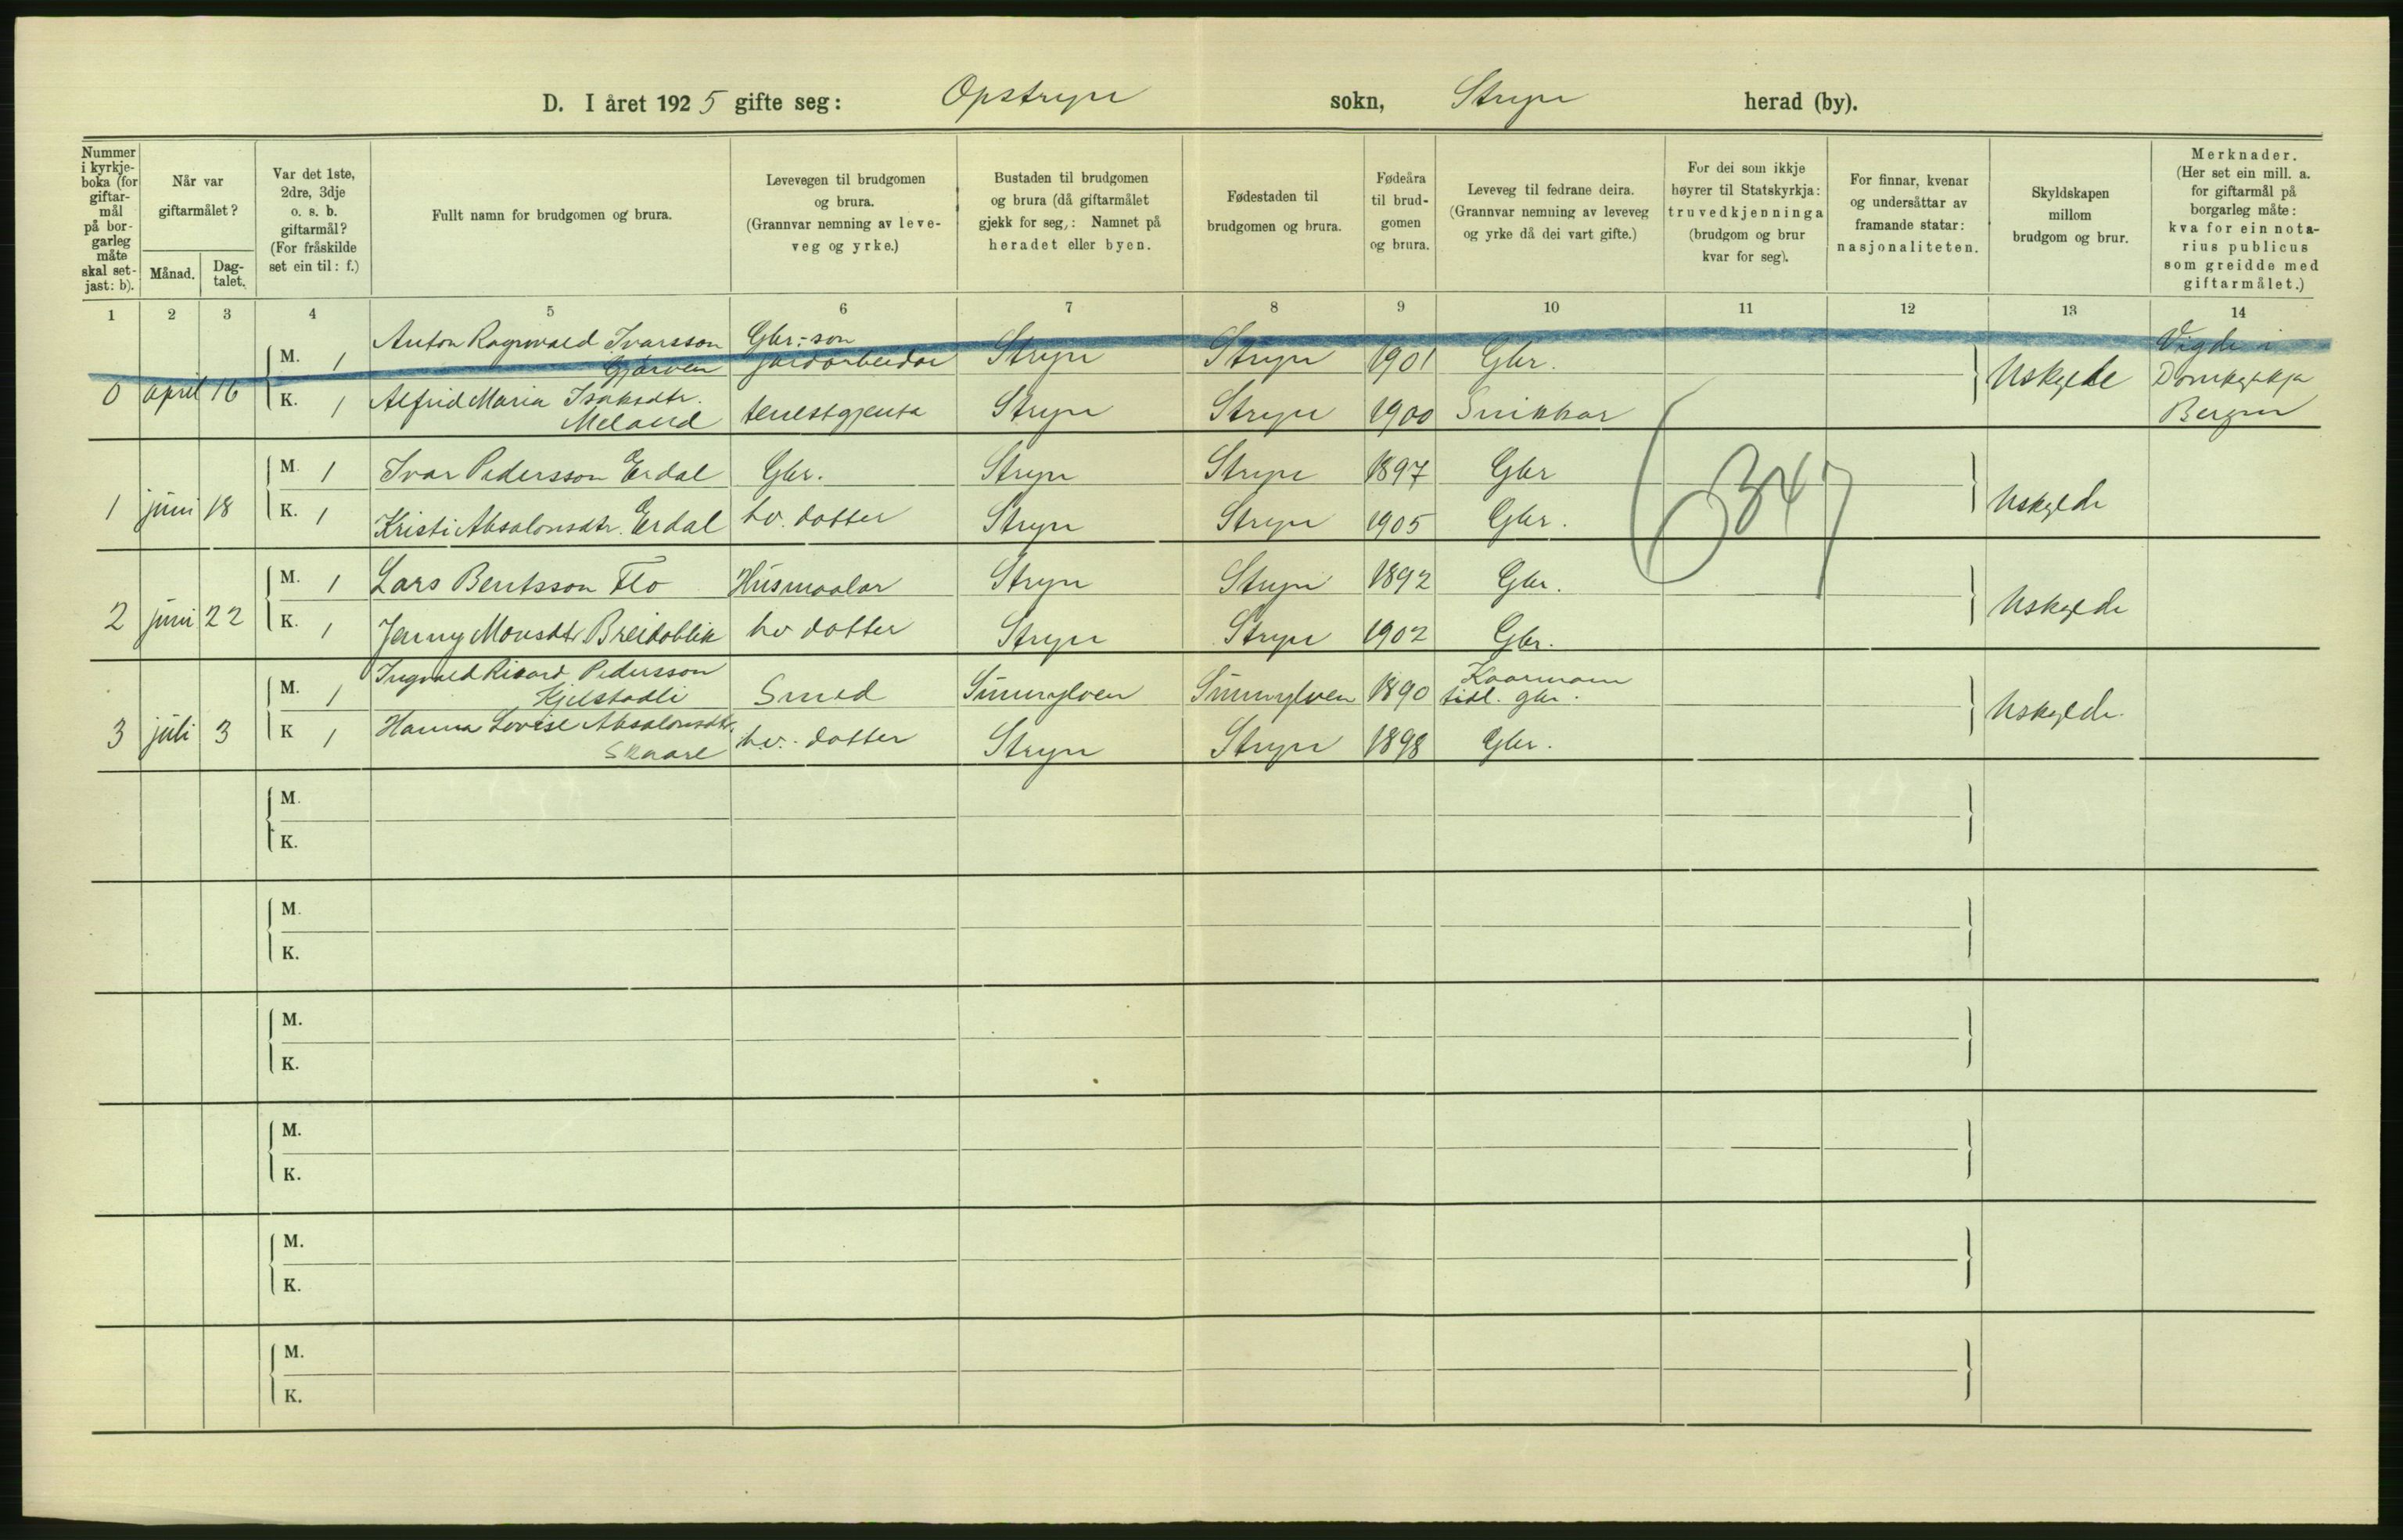 D. I året 1925 gifte seg: Opstryn sokn, Stryn herad (by).
Nummer i kyrkje-boka (for giftar-mål på bor-garleg måte skal set-jast: b).
Når var giftarmålet?
Månad.
Dag-talet.
Var det 1ste, 2dre, 3dje o. s. b. giftarmål? (For fråskilde set ein til: f.)
Fullt namn for brudgomen og brura.
Levevegen til brudgomen og brura. (Grannvar nemning av leve-veg og yrke.)
Bustaden til brudgomen og brura (då giftarmålet gjekk for seg,: Namnet på heradet eller byen.
Fødestaden til brudgomen og brura.
Fødeåra til brud-gomen og brura.
Leveveg til fedrane deira. (Grannvar nemning av leveveg og yrke då dei vart gifte.)
For dei som ikkje høyrer til Statskyrkja: truvedkjenninga (brudgom og brur kvar for seg).
For finnar, kvenar og undersåttar av framande statar: nasjonaliteten.
Skyldskapen millom brudgom og brur.
Merknader. (Her set ein mill. a. for giftarmål på borgarleg måte: kva for ein nota-rius publicus som greidde med giftarmålet.)
1 2 3 4 5 6 7 8 9 10 11 12 13 14
0 april 16
M. 1 Anton Ragnvald Ivarsson Gjørven Gbr.-son jordarbeidar Stryn Stryn 1901 Gbr.
K. 1 Alfrid Maria Isaksdtr. Meland tenestgjenta Stryn Stryn 1900 Snikkar
Uskylde
Vigde i
Domkyrkja
Bergen
1 juni 18
M. 1 Ivar Pedersson Erdal Gbr. Stryn Stryn 1897 Gbr
K. 1 Kristi Absalonsdtr. Erdal hv. dotter Stryn Stryn 1905 Gbr.
Uskylde
347
2 juni 22
M. 1 Lars Bentsson Flo Husmaalar Stryn Stryn 1892 Gbr.
K. 1 Jenny Monsdtr Breidablik hv dotter Stryn Stryn 1902 Gbr.
Uskylde
3 juli 3
M. 1 Ingvald Rikard Pedersson Kjelstadli Smed Sunnylven Sunnylven 1890 Kaarmann tidl. gbr.
K 1 Hanna Lovise Absalonsdtr. Skaare hv. dotter Stryn Stryn 1898 Gbr.
Uskylde.
M.
K.
M.
K.
M.
K.
M.
K.
M.
K.
M.
K.